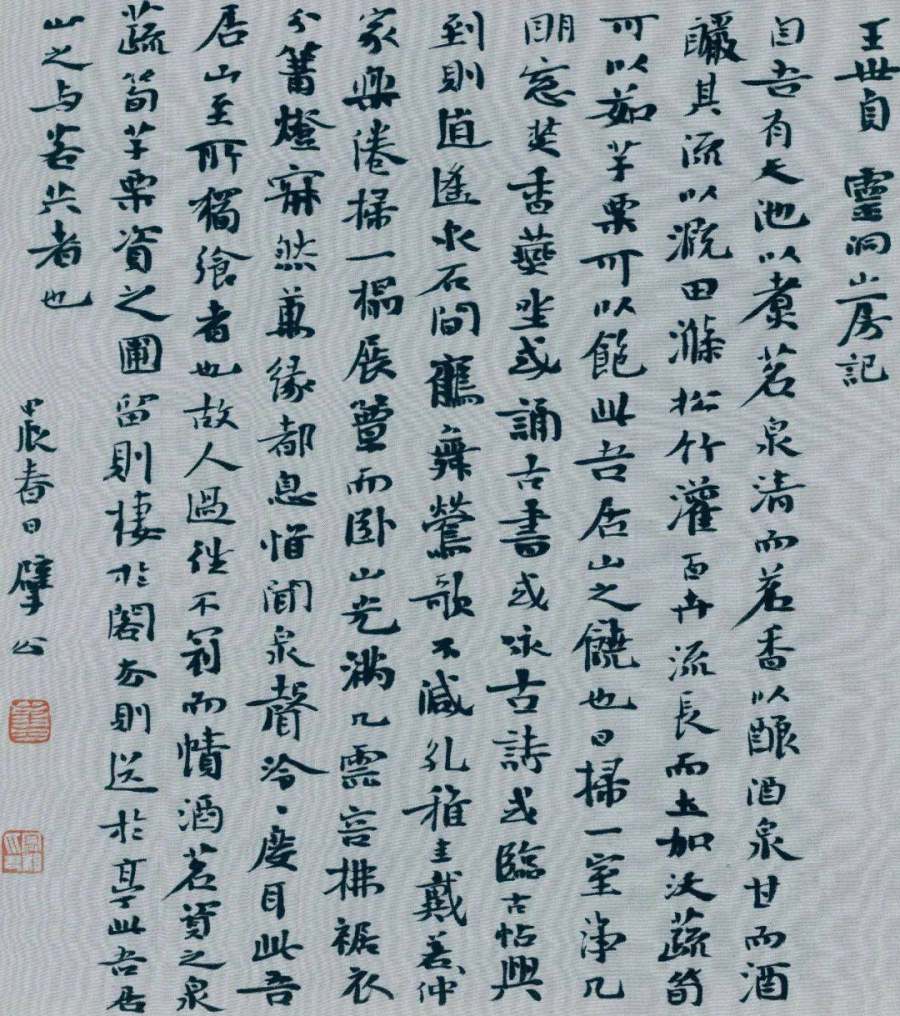 王世貞 靈洞山房記
自吾有天池以煮茗泉清而茗香以釀酒泉甘而酒
釅其流以溉田滌松竹灌百卉流長而土加沃蔬筍
可以茹芋栗可以飽此吾居山之饒也日掃一室淨几
明窓焚香藝坐或誦古書或咏古詩或臨古帖興
到則逍遙水石間鶴舞鶯歌不減孔稚圭戴若仲
家興倦掃一榻展簟而臥山光滿几雲容拂裾衣
分篝燈寂然萬緣都息惜聞泉聲泠〻度耳此吾
居山至所獨飧者也故人過從不冠而幘酒茗資之泉
蔬筍芋栗資之圃留則棲於閣去則送於亭此吾居
山之与客共者也
甲辰春日 擘公